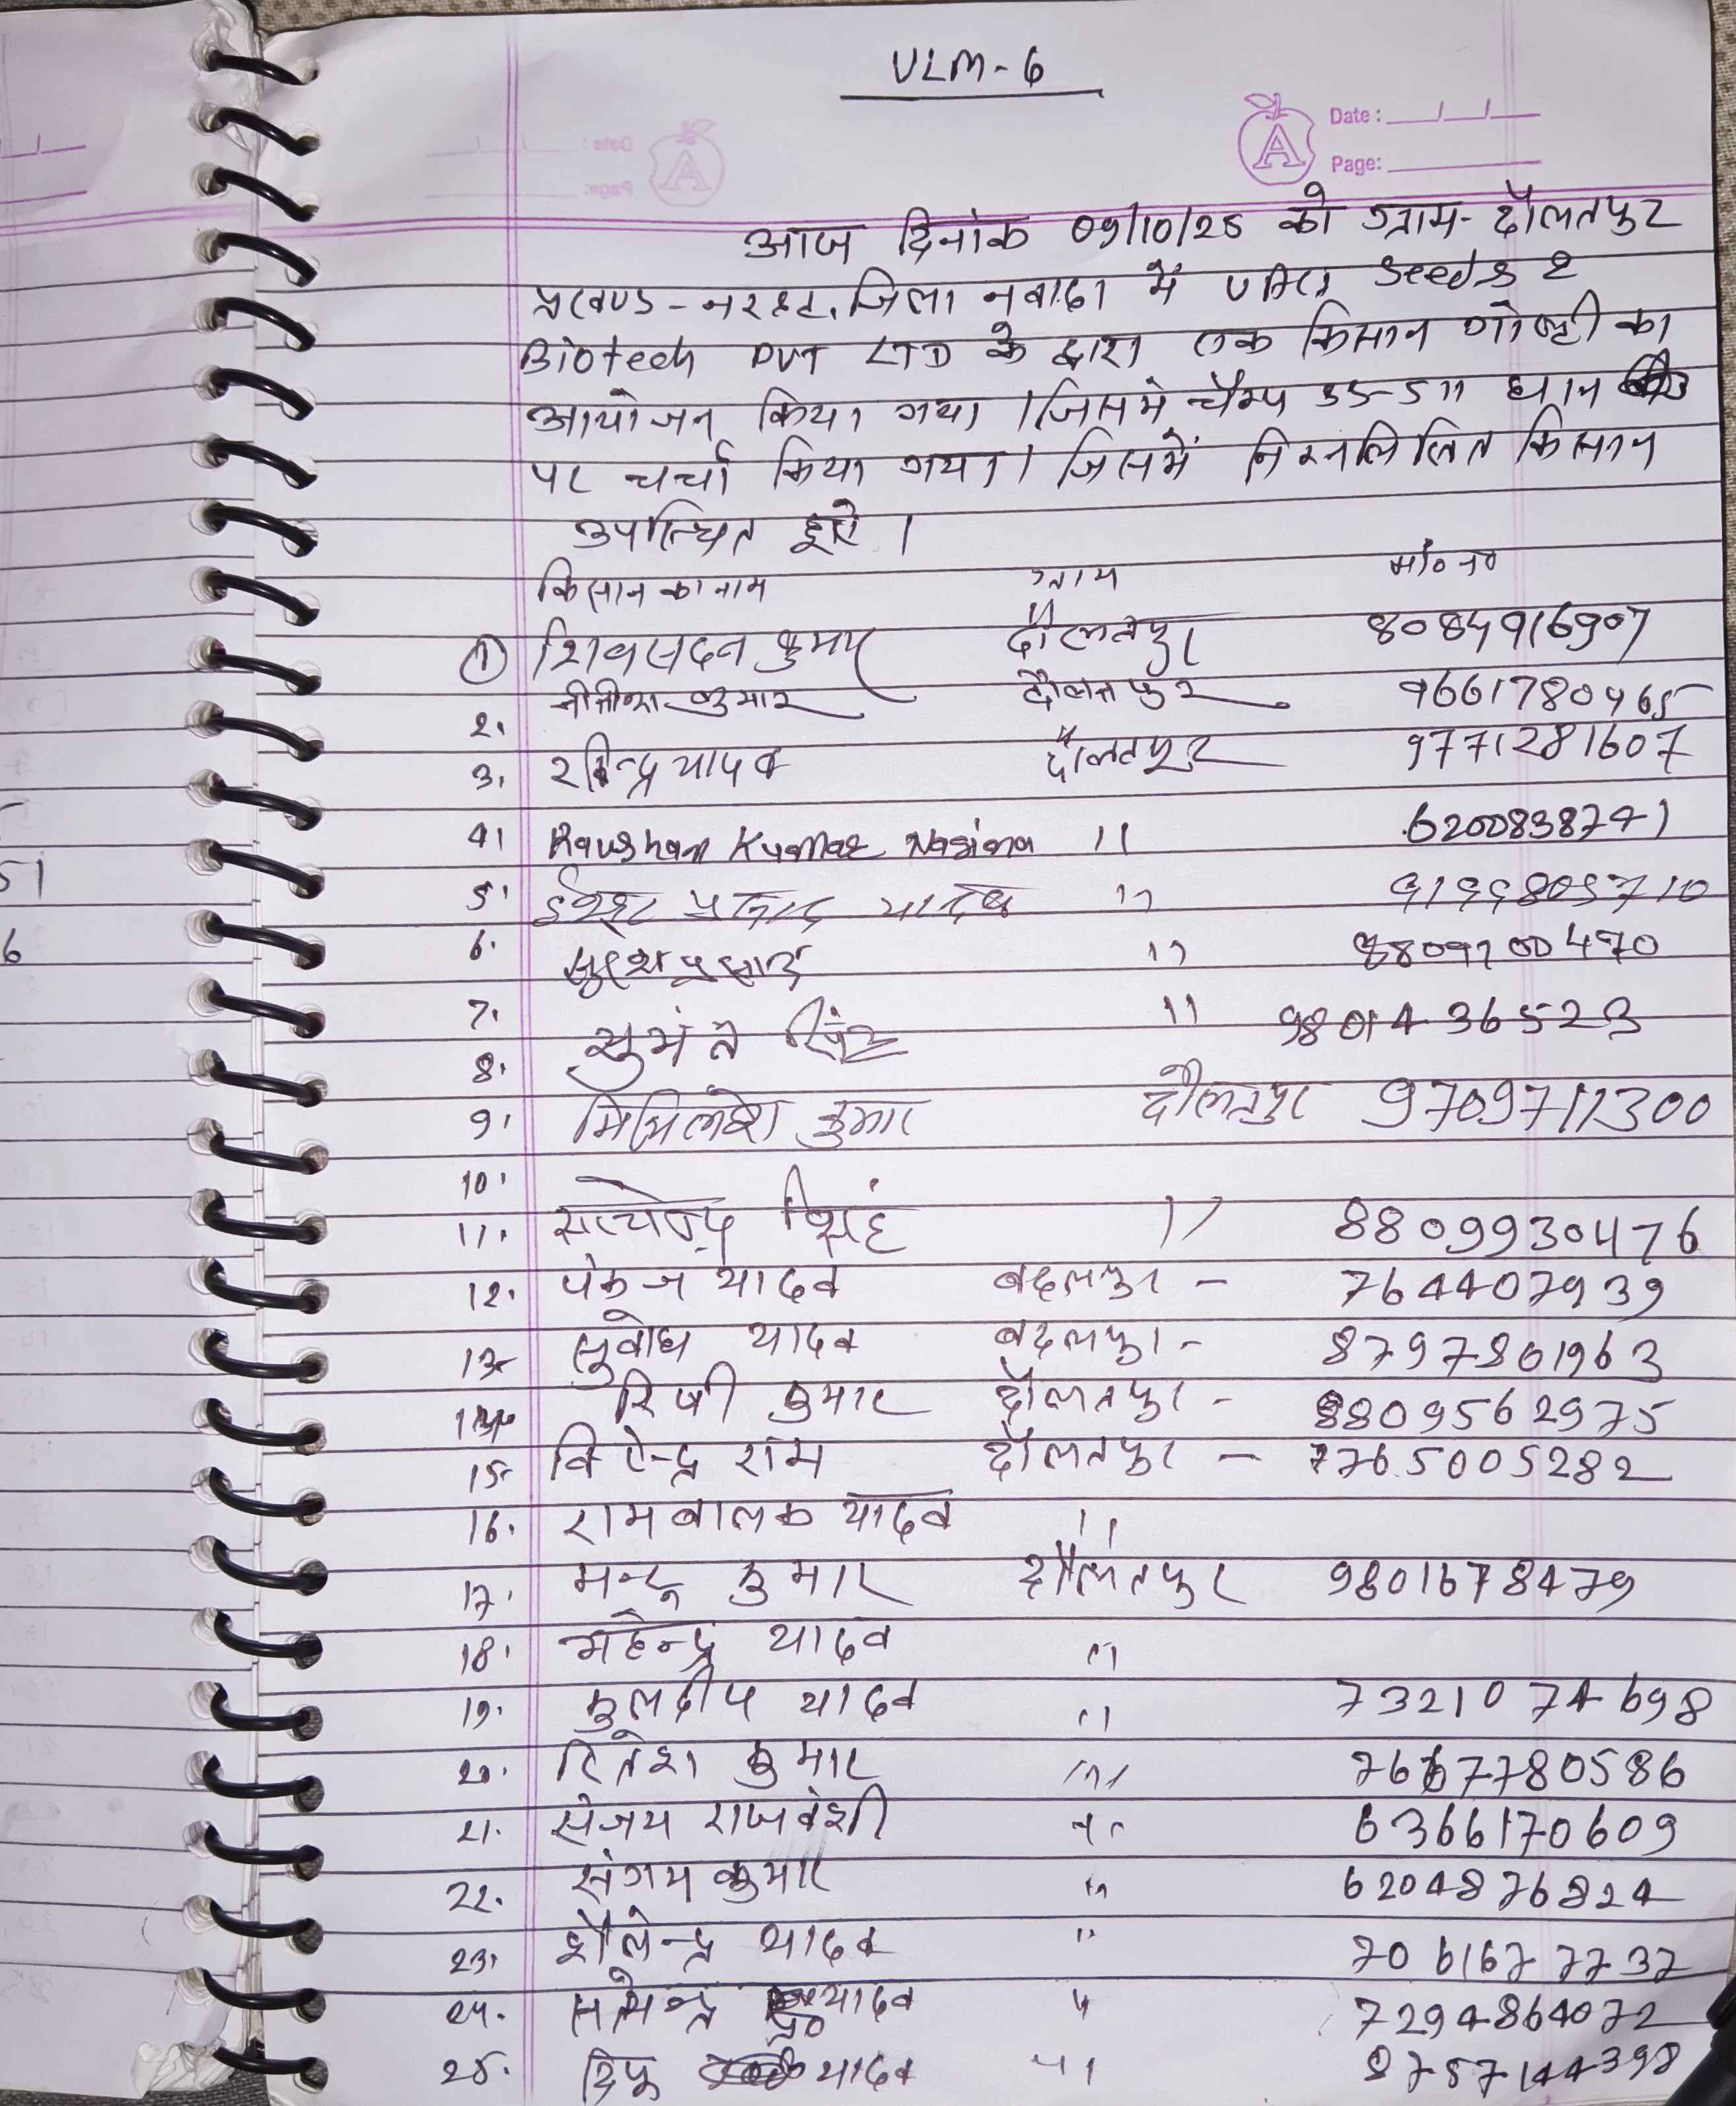 VLM-6
Date :
Page:
आज दिनांक 09/10/25 को ग्राम- दौलतपुर
प्रखण्ड - नरहट, जिला नवादा में Seeds &
Biotech PVT LTD के द्वारा एक किसान गोष्ठी का
आयोजन किया गया। जिसमे चैम्प 35-511 धान
पर चर्चा किया गया। जिसमें निम्नलिखित किसान
उपस्थित हुऐ।
किसान का नाम ग्राम मो० न०
1 शिवसदन कुमार दौलतपुर 8084916907
2. नीतीश कुमार दौलतपुर 9661780465
3. रविन्द्र यादव दौलतपुर 9771281607
4. Raushan Kumar 11 6200838741
5. प्रसाद यादव 11 9199805710
6. सुरेश प्रसाद 11 8809700470
7. 11 9801436523
8. सुमंत सिंह
9. मिथिलेश कुमार दौलतपुर 9709711300
10.
11. सत्येन्द्र सिंह 11 8809930476
12. पंकज यादव बदलपुर - 764407939
13. सुबोध यादव बदलपुर - 8797801963
14. रिषी कुमार दौलतपुर - 8809562975
15. विरेन्द्र राम दौलतपुर - 7765005282
16. रामबालक यादव 11
17. मन्टू कुमार दौलतपुर 9801678479
18. महेन्द्र यादव 11
19. कुलदीप यादव 11 7321074698
20. रितेश कुमार 11 7667780586
21. संजय राजवंशी 11 6366170609
22. संगम कुमार 11 6204876824
23. शैलेन्द्र यादव 11 7061677737
24. सत्येन्द्र यादव 11 7294864072
25. दिपू यादव 11 8787144398
51
6